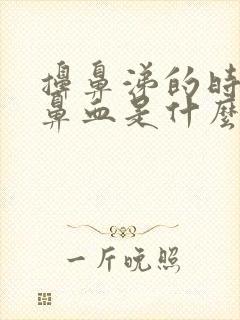 擤鼻涕的時
鼻血是什麼
一斤晚照